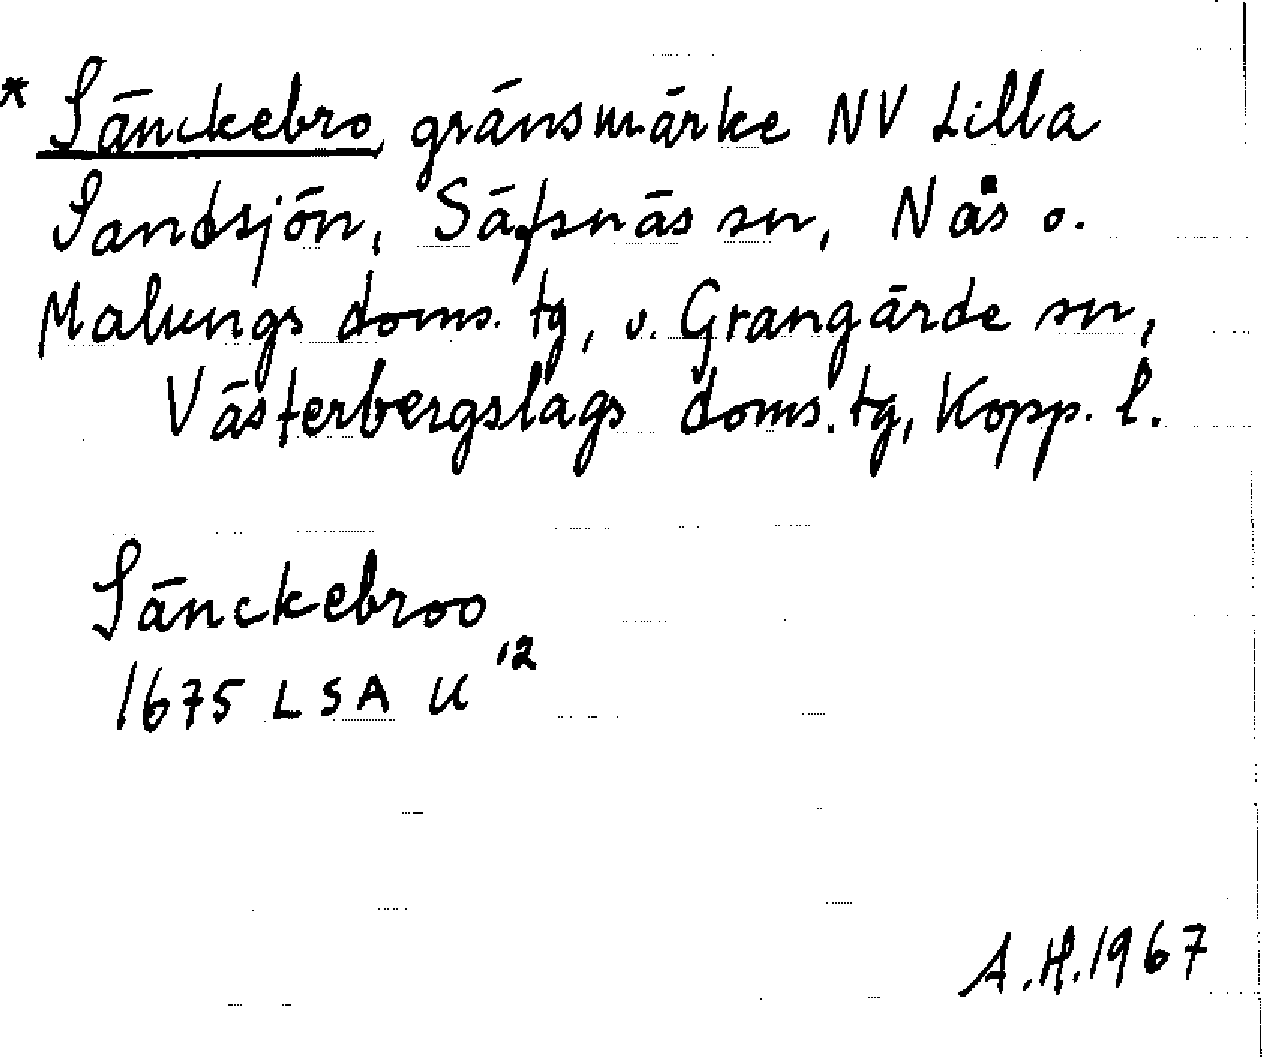 * Sänckebro, gränsmärke NV Lilla
Sandsjön, Säfsnäs sn, Nås o.
Malungs doms. tg, o. Grangärde sn,
Västerbergslags doms. tg, Kopp. l.
Sänckebroo
1675 LSA U '2
A.H. 1967